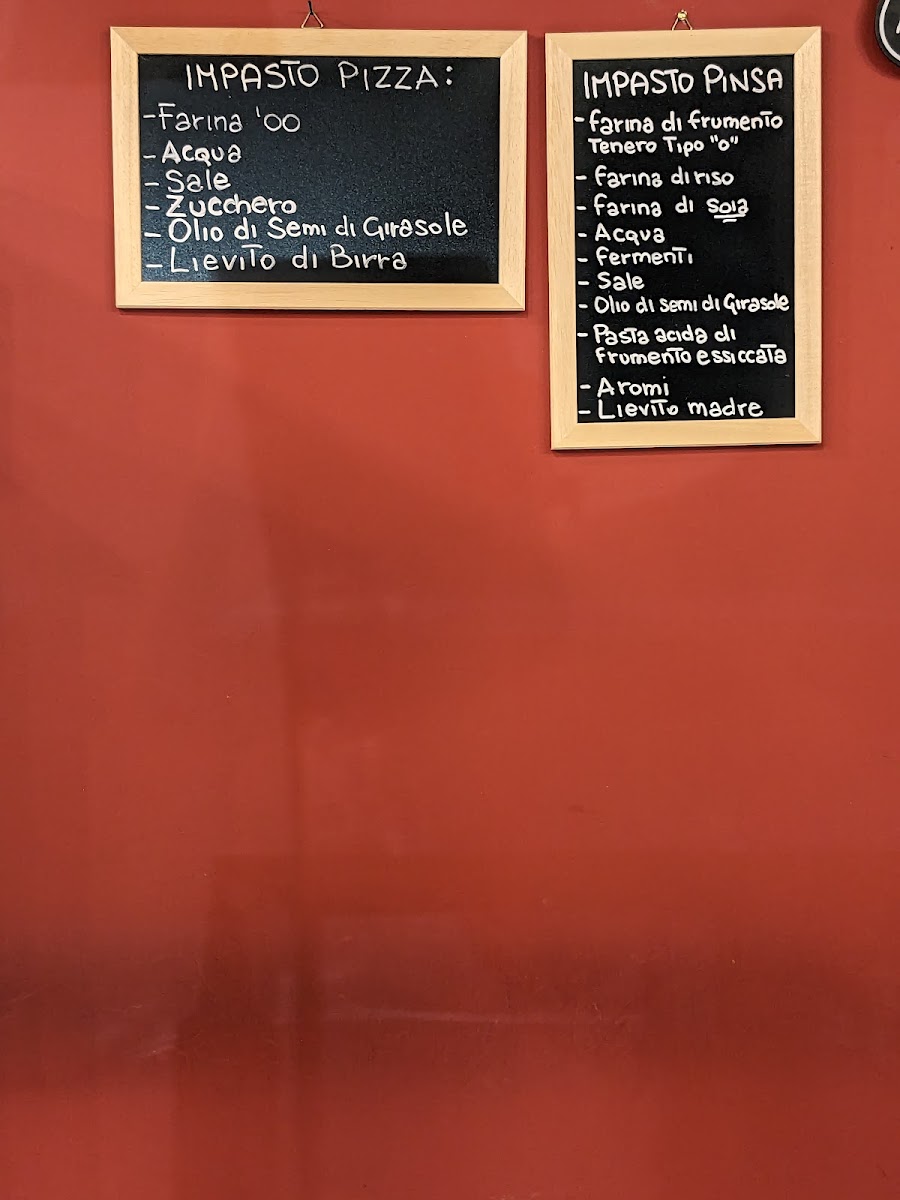 IMPASTO PIZZA:
- Farina '00
- Acqua
- Sale
- Zucchero
- Olio di Semi di Girasole
- Lievito di Birra
IMPASTO PINSA
- farina di frumento
Tenero Tipo "0"
- farina di riso
- farina di soia
- Acqua
- fermenti
- Sale
- Olio di semi di Girasole
- Pasta acida di
frumento essiccata
- Aromi
- Lievito madre